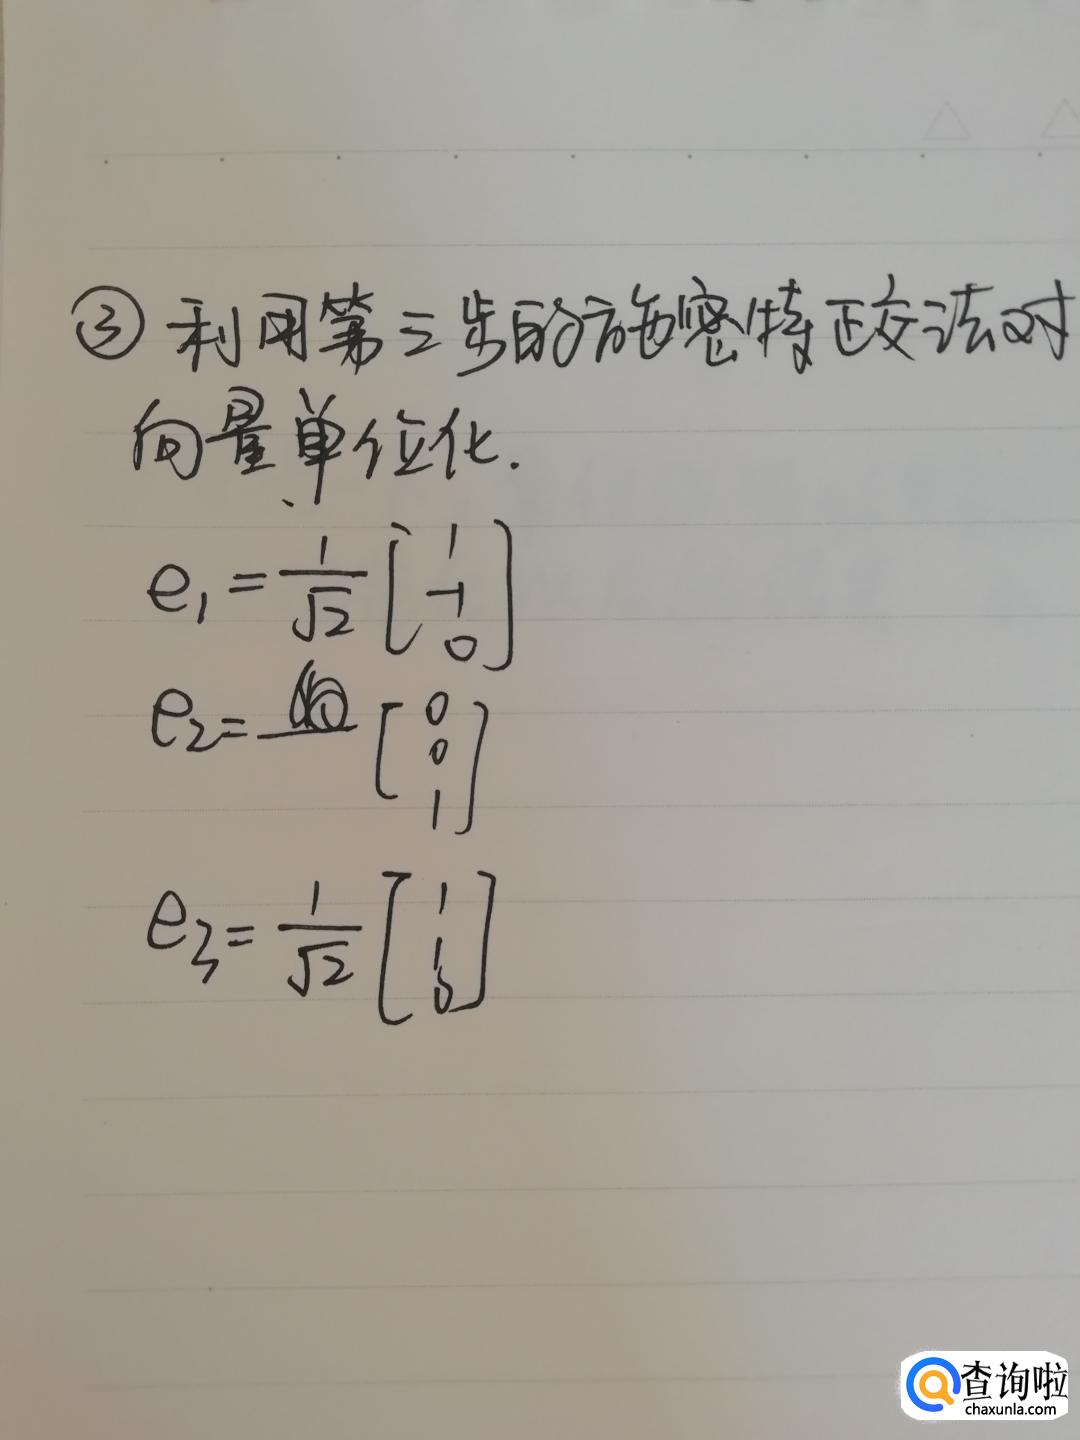 ③利用第三步的施密特正交法对
向量单位化.
e₁ = 1/√2 [1 -1 0]
e₂ = [0 0 1]
e₃ = 1/√2 [1 1 0]
查询啦
chaxunla.com